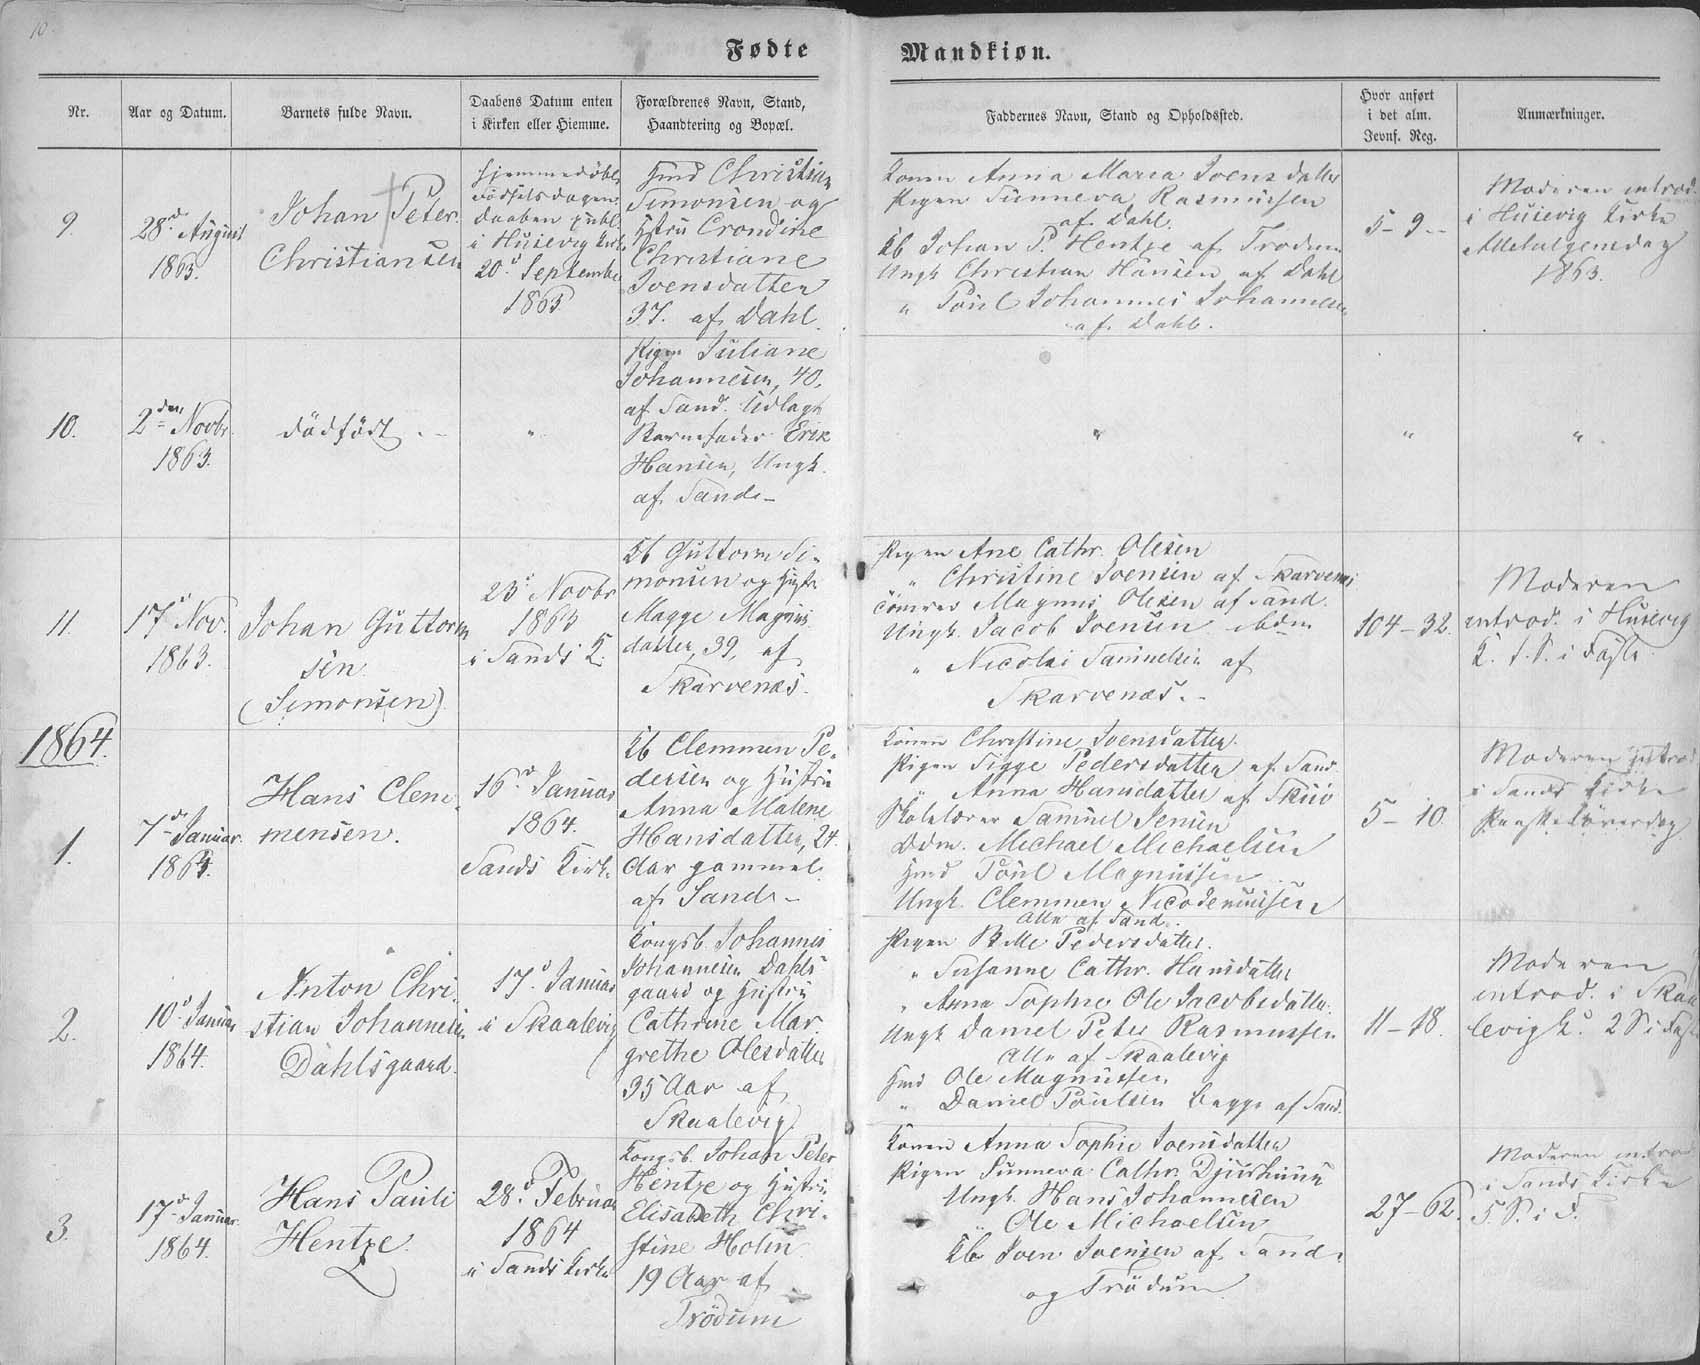 10
Fødte Mandkiøn.
Nr.
Aar og Datum.
Barnets fulde Navn.
Daabens Datum enten
i Kirken eller Hiemme.
Forældrenes Navn, Stand,
Haandtering og Bopæl.
Faddernes Navn, Stand og Opholdssted.
Hvor anført
i det alm.
Jevnf. Reg.
Anmærkninger.
9.
28d August
1863.
Johan Peter
Christiansen
Hjemmedøbt
Fødselsdagen
Daaben publ.
i Husevig Kirke
20d September
1863
Hmd Christian
Simonsen og
Hstru Crondine
Christiane
Joensdatter
37. af Dahl.
Konen Anna Maria Joensdatter
Pigen Sunneva Rasmussen
af Dahl.
Kb Johan P. Hentze af Trodum
Ungk Christian Hansen af Dahl
" Poul Johannes Johannesen
af Dahl.
5-9-
Moderen introd.
i Husevig Kirke
Allehelgensdag
1863.
10.
2den Novbr.
1863.
dødfødt.
"
Pigen Juliane
Johannesen, 40.
af Sand. Udlagt
Barnefader Erik
Hansen, Ungk.
af Sand-
"
"
"
11.
17d Nov.
1863.
Johan Guttorm
sen
(Simonsen)
23d Novbr
1863
i Sands K.
Kb Guttorm Si-
monsen og Hustr
Magge Magnus
datter, 39, af
Skarvenæs.
Pigen Ane Cathr. Olesen
" Christine Joensen af Skarvenæs
Tömrer Magnus Olesen af Sand.
Ungk. Jacob Joensen ibdm
" Nicolai Samuelsen af
Skarvenæs.-
104-32.
Moderen
introd. i Husevig
K. 1. S. i Faste.
1864.
1.
7d Januar.
1864.
Hans Clem
mensen.
16d Januar
1864.
Sands Kirke
Kb Clemmen Pe-
dersen og Hustru
Anna Malene
Hansdatter, 24.
Aar gammel
af Sand-
Konen Christine Joensdatter.
Pigen Sigge Pedersdatter af Sand
" Anna Hansdatter af Skuö
Skolelærer Samuel Jensen
Ddm. Michael Michaelsen
Hmd Poul Magnussen
Ungk. Clemmen Nicodemussen
Alle af Sand.
5-10.
Moderen introd
i Sands Kirke
2.
10d Januar
1864.
Anton Chri-
stian Johannesen
Dahlsgaard.
17d Januar
i Skaalevig
Kongsb. Johannes
Johannesen Dahls
gaard og Hustru
Cathrine Mar
grethe Olesdatter
35 Aar af
Skaalevig
Pigen Bille Pedersdatter.
" Susanne Cathr. Hansdatter
" Anna Sophie Ole Jacobsdatter
Ungk Daniel Peter Rasmussen
Alle af Skaalevig
Hmd Ole Magnussen
" Daniel Poulsen begge af Sand.
11-18.
Moderen
introd. i Skaa
levig K. 2 S i Faste
3.
17d Januar
1864.
Hans Pauli
Hentze.
28d Februar
1864
i Sands Kirke
Kongsb. Johan Peter
Hentze og Hustru
Elisabeth Chri-
stine Holm
19 Aar af
Trödum
Konen Anna Sophie Joensdatter
Pigen Sunneva Cathr. Djurhuus
Ungk. Hans Johannesen
" Ole Michaelsen
Kb Joen Joensen af Sand
og Trödum
27-62.
Moderen introd
i Sands Kirke
5. S. i F.